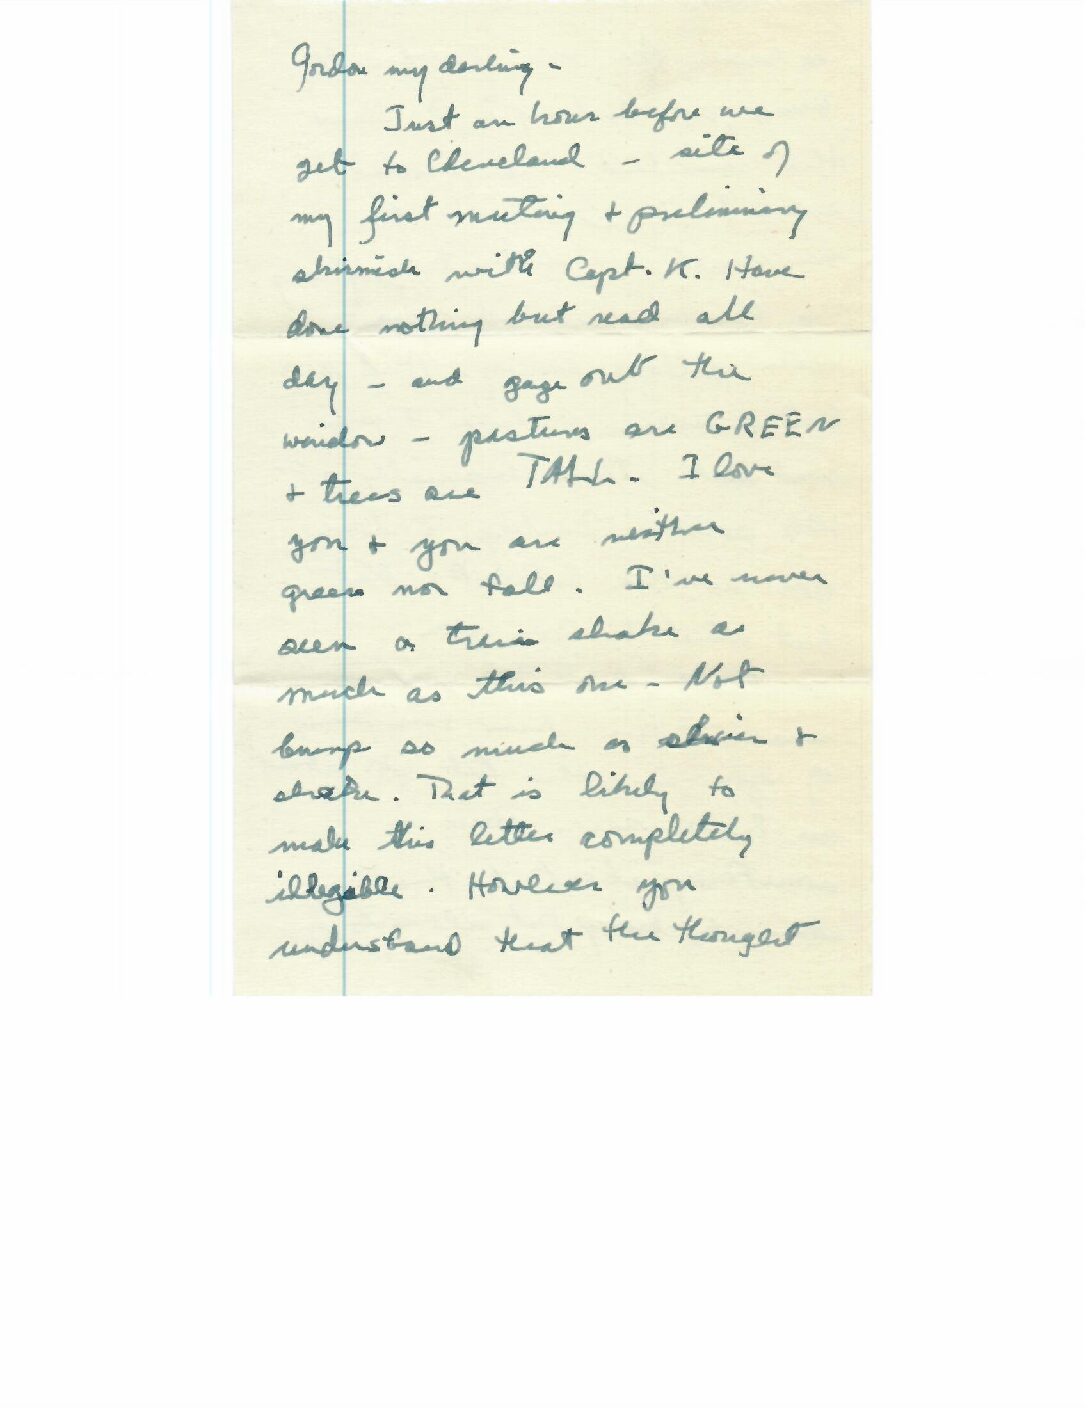 Gordon my darling -
Just an hour before we
get to Cleveland - site of
my first meeting + preliminary
skirmish with Capt. K. Have
done nothing but read all
day - and gaze out the
window - pastures are GREEN
+ trees are TALL. I love
you + you are neither
green nor tall. I've never
seen a train shake as
much as this one - Not
bump so much as +
shake. That is likely to
make this letter completely
illegible. However you
understand that the thought